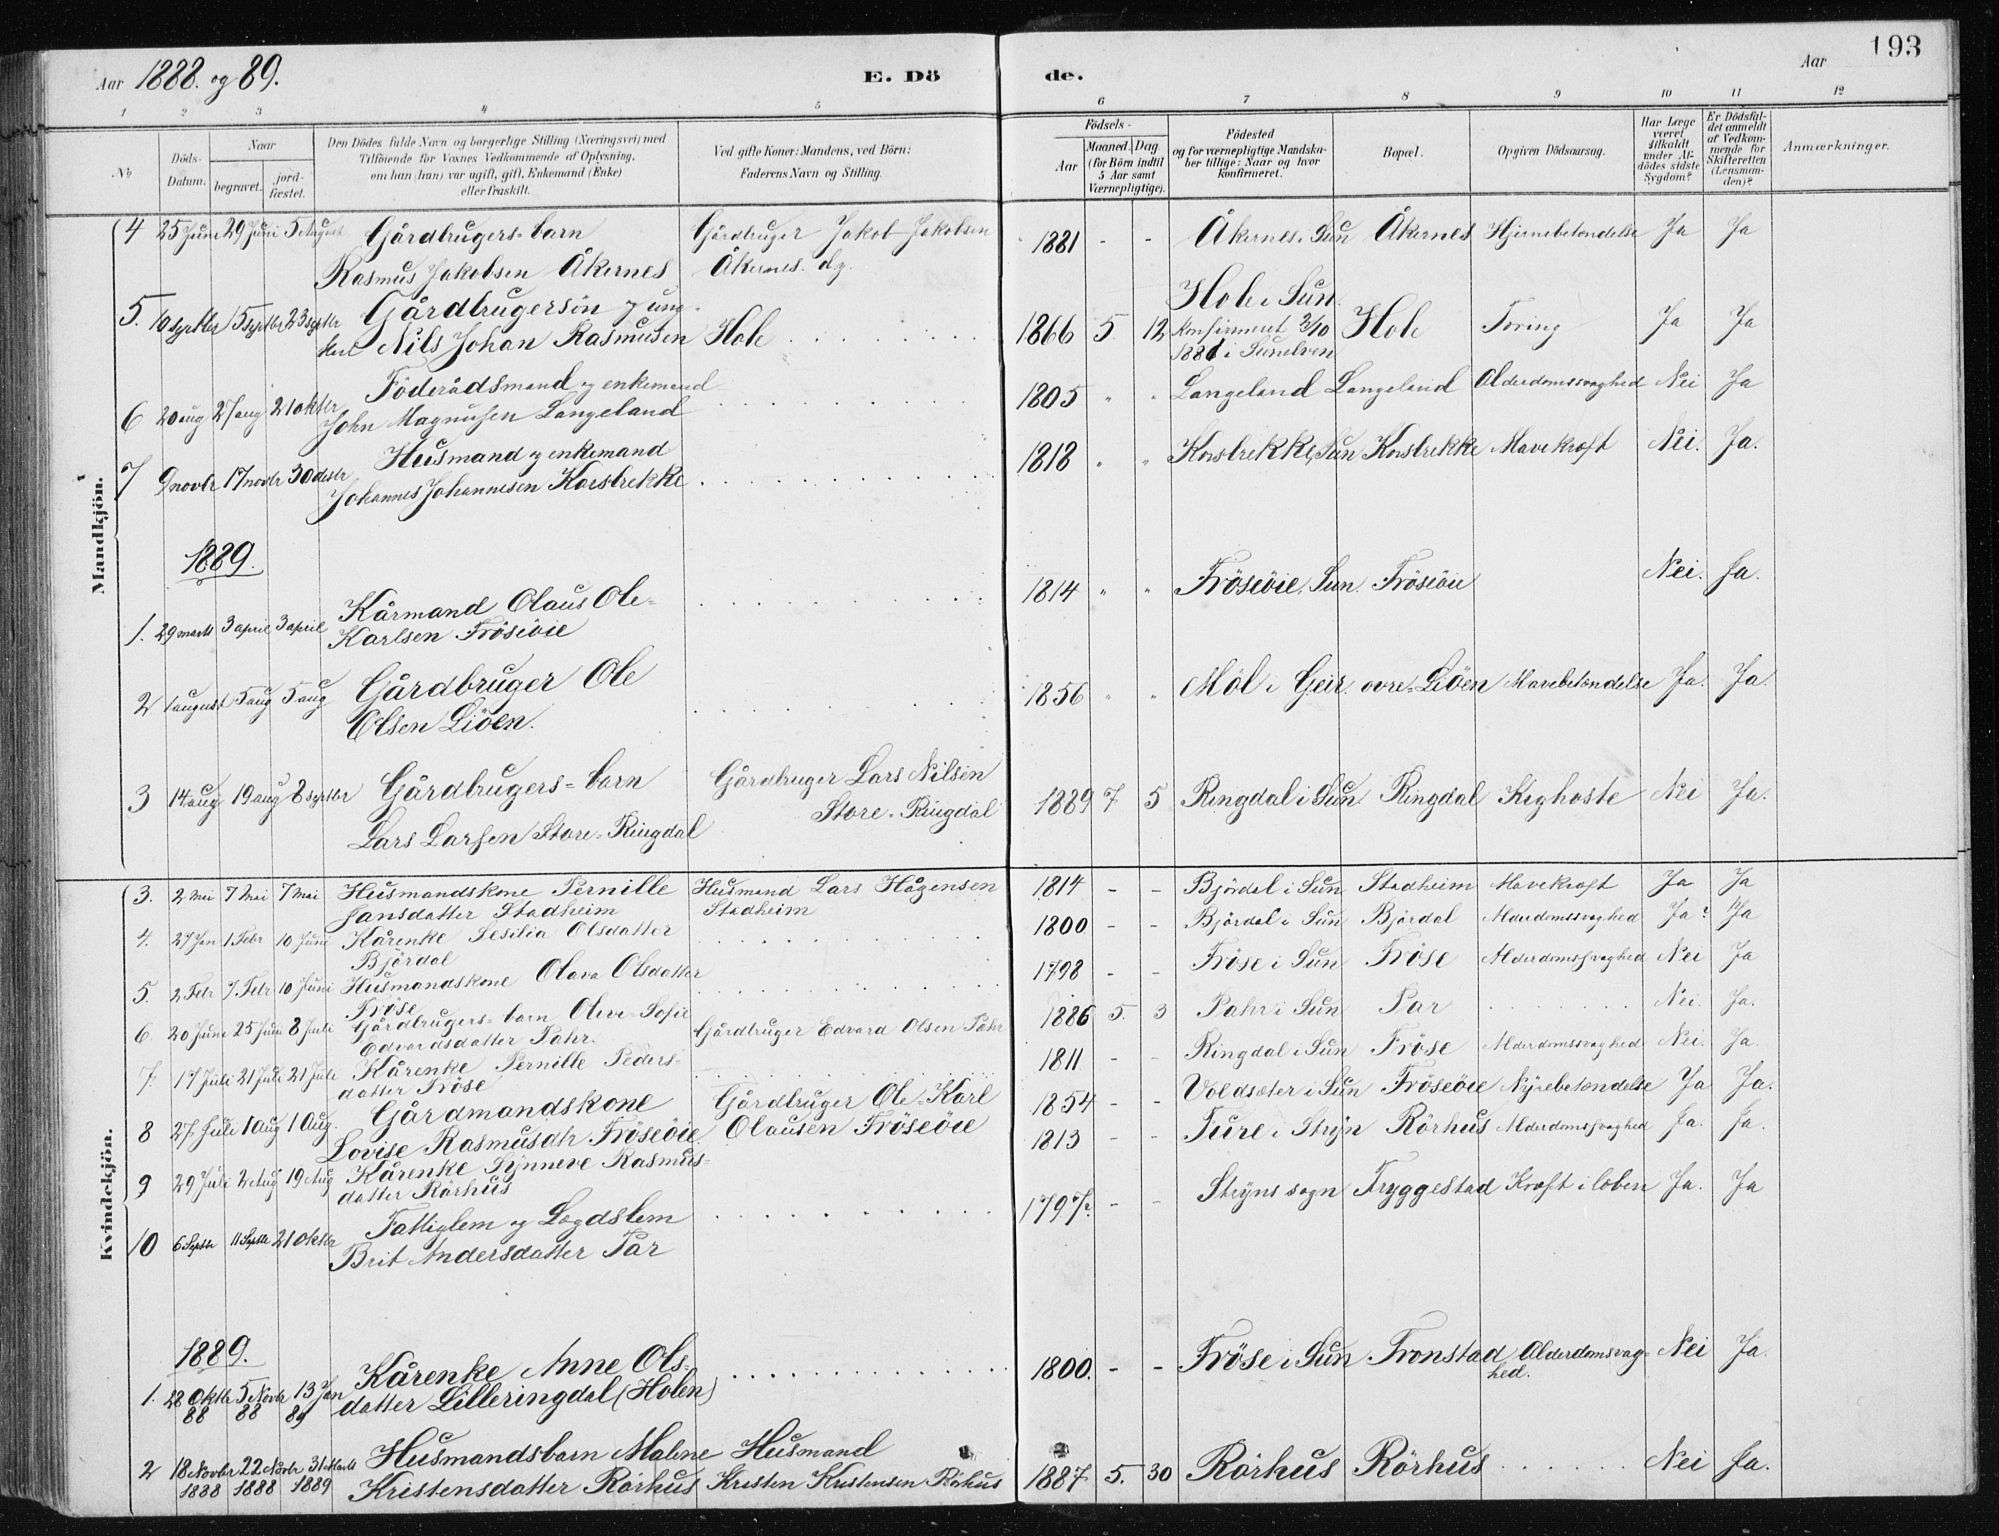 Aar 1888. og 89.
E. Dö
de.
Aar
193
1 2 3 4 5 6 7 8 9 10 11 12
№
Döds-Datum.
Naar
begravet.
jord-fæstet.
Den Dödes fulde Navn og borgerlige Stilling (Næringsvei) med
Tilföiende for Voxnes Vedkommende af Oplysning,
om han (hun) var ugift, gift, Enkemand (Enke)
eller fraskilt.
Ved gifte Koner: Mandens, ved Börn:
Faderens Navn og Stilling.
Födsels-
Aar
Maaned. Dag.
(for Börn indtil
5 Aar samt
Værnepligtige).
Födested
og for værnepligtige Mandska-
ber tillige: Naar og hvor
konfirmeret.
Bopæl.
Opgiven Dödsaarsag.
Har Læge
været
tilkaldt
under Af-
dödes sidste
Sygdom?
Er Dödsfal-
det anmeldt
af Vedkom-
mende for
Skifteretten
(Lensman-
den)?
Anmærkninger.
Mandkjön.
4 25 June 29 Juni 5 August Gårdbrugers-barn Gårdbruger Jakob Jakobsen 1881 - - Åkernes i Sun Åkernes Hjernebetændelse Ja Ja
Rasmus Jakobsen Åkernes Åkernes.
5. 10 septbr 15 septbr 23 septbr Gårdbrugersön og ung- Hole i Sun.
kerl Nils Johan Rasmusen Hole 1866 5 12 konfirmeret 2/10 Hole Tæring Ja Ja
1881 i Sunelven
Föderådsmand og enkemand
6 20 aug 27 aug 21 oktbr John Magnusen Langeland 1805 " " Langeland Langeland Alderdomssvaghed Nei Ja
Husmand og enkemand
7 9 novbr 17 novbr 30 desbr Johannes Johannesen Korsbrekke 1818 " " Korsbrekke, Sun Korsbrekke Mavekræft Nei. Ja.
1889.
1. 29 marts 3 april 3 april Kårmand Olaus Ole- 1814 " " Fröseöie. Sun. Fröseöie Nei. Ja.
Karlsen Fröseöie
2 1 august 5 aug 5 aug Gårdbruger Ole 1856 " " Möl i Geir. övre-Liöen Mavebetændelse Ja. Ja.
Olsen Liöen.
3 14 aug 19 aug 8 septbr Gårdbrugers-barn Gårdbruger Lars Nilsen 1889 7 5 Ringdal i Sun Ringdal Kighoste Nei Ja.
Lars Larsen Store-Ringdal Store-Ringdal
Kvindekjön.
3. 2 Mei 7 Mai 7 Mai Husmandskone Pernille Husmand Lars Hågensen 1814 - - Björdal i Sun Stadheim Mavekræft Ja Ja
Jansdatter Stadheim Stadheim
4. 27 Jan 1 Febr 10 Juni Kårenke Sesilia Olsdatter 1800 - - Björdal i Sun Björdal Alderdomssvaghed Ja? Ja
Björdal
5. 2 Febr 7. Febr 10 Juni Husmandskone Olava Olsdatter 1798 - - Fröse i Sun Fröse Alderdomssvaghed Nei Ja
Fröse
6. 20 June 25 June 8 Juli Gårdbrugers-barn Olive-Sofie Gårdbruger Edvard Olsen Pahr 1886 5. 3 Pahr i Sun Par Nei. Ja.
Edvardsdatter Pahr.
7. 17 Juli 21 Juli 21 Juli Kårenke Pernille Peders- 1811 - - Ringdal i Sun Fröse Alderdomssvaghed Nei. Ja.
datter Fröse
8 27. Juli 1 Aug 1 Aug. Gårdmandskone Gårdbruger Ole-Karl 1854 - - Voldsæter i Sun Fröseöie Nyrebetændelse Ja Ja.
Lovise Rasmusdtr Fröseöie. Olausen Fröseöie
9 29 Juli 2 Aug 19 Aug Kårenke Synneve Rasmus- 1813 - - i Stryn Rörhus Alderdomssvaghed Ja. Ja.
datter Rörhus
10 6 Septbr 11 Septbr 21 oktbr Fattiglem og Lægdslem 1797? - - Stryns sogn Tryggestad Kræft i læben Ja. Ja
Brit Andersdatter Par
1889.
1. 28 Oktbr 88 5 Novbr 88 13 Jan 89 Kårenke Anne Ols- 1800. - - Fröse i Sun Tronstad Alderdomsvag-hed. Nei Ja.
datter Lilleringdal (Holen)
2 18 Novbr 1888 22 Novbr 1888 31 Marts 1889 Husmandsbarn Malene Husmand 1887 5. 30 Rörhus Rörhus Nei Ja.
Kristensdatter Rörhus Kristen Kristensen Rörhus